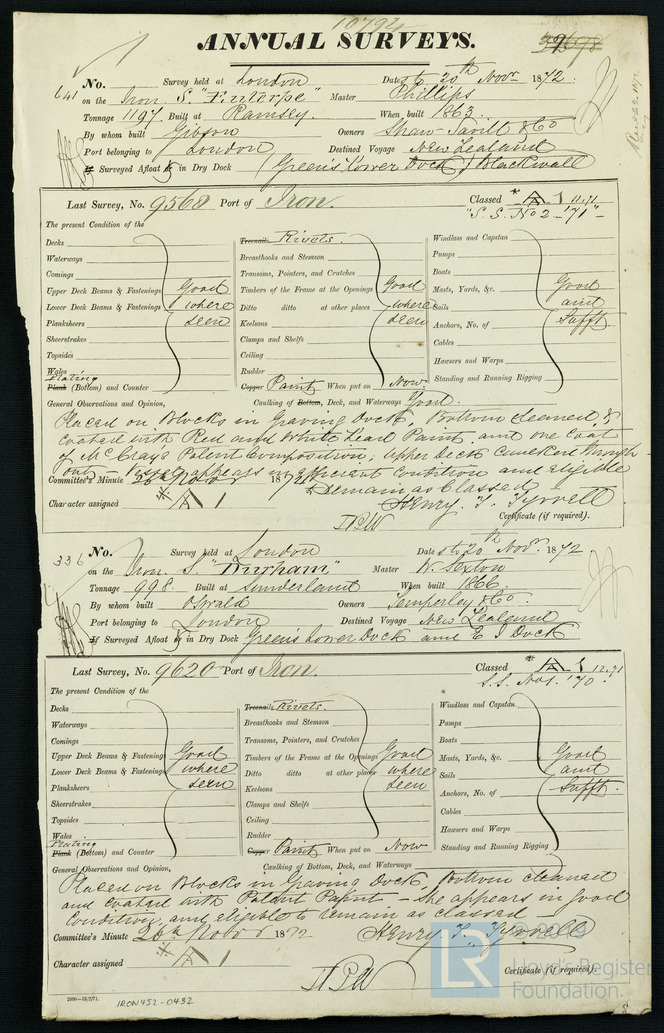 10794
ANNUAL SURVEYS.
No. Survey held at London Date 20th Novr 1872.
641 on the Iron S. "Euterpe" Master Phillips
Tonnage 1197 Built at Ramsey. When built 1863.
By whom built Gibson Owners Shaw Savill & Co
Port belonging to London Destined Voyage New Zealand
If Surveyed Afloat or in Dry Dock (Green's Lower Dock) Blackwall
Last Survey, No. 9568 Port of Iron. Classed A 1 11.71
"S. S. No 2 - '71"
The present Condition of the
Decks
Waterways
Comings
Upper Deck Beams & Fastenings Good
Lower Deck Beams & Fastenings where
Planksheers seen
Sheerstrakes
Topsides
Wales
Plating
Plank (Bottom) and Counter
Treenails Rivets.
Breasthooks and Stemson
Transoms, Pointers, and Crutches
Timbers of the Frame at the Openings Good
Ditto ditto at other places where
Keelsons seen
Clamps and Shelfs
Ceiling
Rudder
Copper Paint When put on Now.
Windlass and Capstan
Pumps
Boats
Masts, Yards, &c. Good
Sails and
Anchors, No. of Sufft
Cables
Hawsers and Warps
Standing and Running Rigging
General Observations and Opinion, Caulking of Bottom, Deck, and Waterways Good.
Placed on Blocks in Graving Dock, Bottom cleaned &
coated with Red and White Lead Paint and one Coat
of McCrays Patent Composition, upper Deck Caulked through-
out - Vessel appears in efficient condition and eligible
to remain as Classed
Committee's Minute 26 Novr 1872
Henry T. Tyrrell
Character assigned A 1
Certificate (if required).
No. Survey held at London Date 20th Novr. 1872.
336 on the Iron S "Durham" Master W. Sexton
Tonnage 998. Built at Sunderland When built 1866.
By whom built Oswald Owners Temperley & Co.
Port belonging to London Destined Voyage New Zealand
If Surveyed Afloat or in Dry Dock Green's Lower Dock and E I Dock
Last Survey, No. 9620 Port of Iron. Classed A 1 11.71
S.S. No 1. '70.
The present Condition of the
Decks
Waterways
Comings
Upper Deck Beams & Fastenings Good
Lower Deck Beams & Fastenings where
Planksheers seen
Sheerstrakes
Topsides
Wales
Plating
Plank (Bottom) and Counter
Treenails Rivets.
Breasthooks and Stemson
Transoms, Pointers, and Crutches
Timbers of the Frame at the Openings Good
Ditto ditto at other places where
Keelsons seen
Clamps and Shelfs
Ceiling
Rudder
Copper Paint When put on Now
Windlass and Capstan
Pumps
Boats
Masts, Yards, &c. Good
Sails and
Anchors, No. of Sufft.
Cables
Hawsers and Warps
Standing and Running Rigging
General Observations and Opinion, Caulking of Bottom, Deck, and Waterways
Placed on Blocks in Graving Dock, Bottom cleaned
and coated with Patent Paint - she appears in good
Condition and eligible to remain as classed
Committee's Minute 26th Novr 1872
Henry T. Tyrrell
Character assigned A 1
Certificate (if required).
2000-13/2/71.
IRON452-0432
LR Lloyd's Register
Foundation